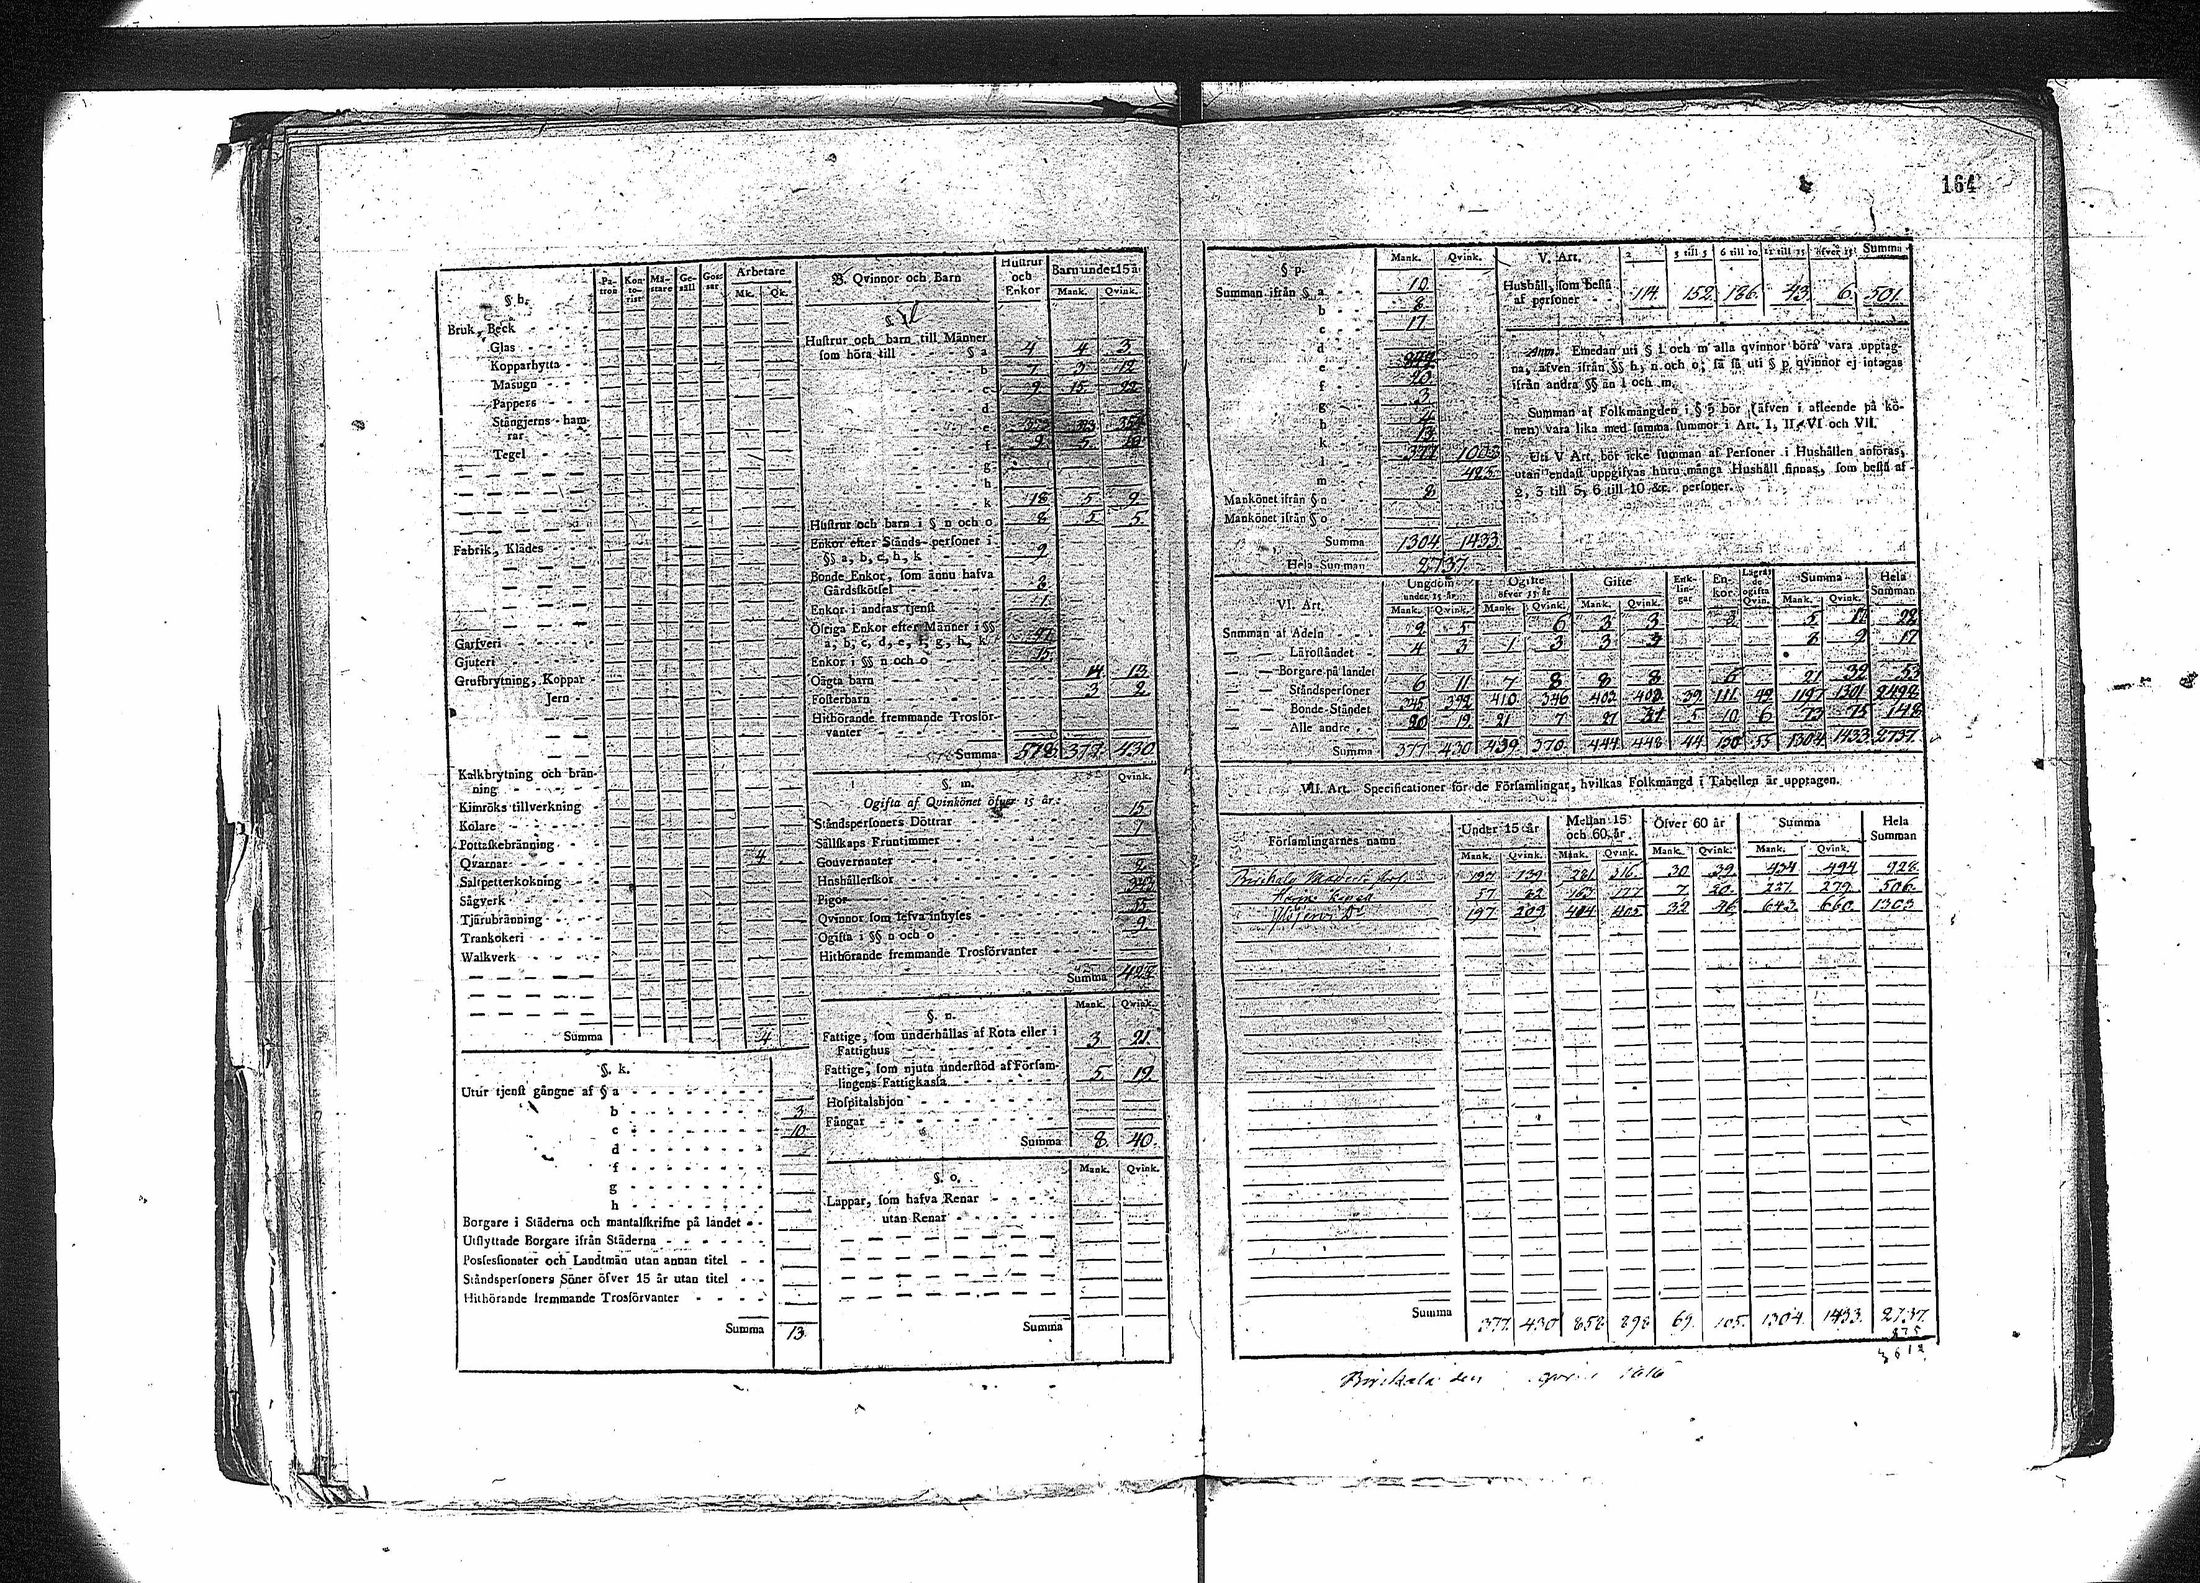 164
§ h.
Patron Kontorist Mästare Gesäll Gossar Arbetare
Mk. Qk.
Bruk, Beck
Glas
Kopparhytta
Masugn
Pappers
Stångjerns-hamrar
Tegel
Fabrik, Klädes
Garfveri
Gjuteri
Grufbrytning, Koppar
Jern
Kalkbrytning och bränning
Kimröks tillverkning
Kolare
Pottaskebränning
Qvarnar 4
Saltpetterkokning
Sågverk
Tjärubränning
Trankokeri
Walkverk
Summa 4
§. k.
Utur tjenst gångne af § a
b 3
c 10
d
f
g
h
Borgare i Städerna och mantalskrifne på landet
Utflyttade Borgare ifrån Städerna
Possessionater och Landtmän utan annan titel
Ståndspersoners Söner öfver 15 år utan titel
Hithörande fremmande Trosförvanter
Summa 13
B. Qvinnor och Barn
Hustrur och Enkor
Barn under 15 år
Mank. Qvink.
Hustrur och barn till Männer
som höra till § a 4 4 3
b 7 3 12
c 9 15 22
d
e
f 9 5
g
h
k 18 5 9
Hustrur och barn i § n och o 8 5 5
Enkor efter Stånds-personer i
§§ a, b, c, h, k 9
Bonde Enkor, som ännu hafva
Gårdsskötsel 2
Enkor i andras tjenst 1
Öfriga Enkor efter Männer i §§
a, b, c, d, e, f, g, h, k
Enkor i §§ n och o 15
Oägta barn 14 13
Fosterbarn 3 2
Hithörande fremmande Trosförvanter
Summa 578 377 430
§. m.
Qvink.
Ogifta af Qvinkönet öfver 15 år:
Ståndspersoners Döttrar 15
Sällskaps Fruntimmer 7
Gouvernanter
Hushållerskor 2
Pigor 343
Qvinnor som lefva inhyses
Ogifta i §§ n och o 9
Hithörande fremmande Trosförvanter
Summa
§. n.
Mank. Qvink.
Fattige, som underhållas af Rota eller i
Fattighus 3 21
Fattige, som njuta understöd af Församlingens Fattigkassa 5 19
Hospitalshjon
Fångar
Summa 8 40
§. o.
Mank. Qvink.
Lappar, som hafva Renar
utan Renar
Summa
§ p.
Mank. Qvink.
Summan ifrån § a 10
b 8
c 17
d
e
f
g 3
h 4
k 13
l 377 1008
m 425
Mankönet ifrån § n 8
Mankönet ifrån § o
Summa 1304 1433
Hela Summan 2737
V. Art. 2 3 till 5 6 till 10 11 till 15 öfver 15 Summa
Hushåll, som bestå
af personer 114 152 186 43 6 501
Anm. Emedan uti § l och m alla qvinnor böra vara upptagna, äfven ifrån §§ h, n och o; så få uti § p qvinnor ej intagas
ifrån andra §§ än l och m.
Summan af Folkmängden i § p bör (äfven i afseende på könen) vara lika med samma summor i Art. I, II, VI och VII.
Uti V Art. bör icke summan af Personer i Hushållen anföras,
utan endast uppgifvas huru många Hushåll finnas, som bestå af
2, 3 till 5, 6 till 10 &c. personer.
VI. Art.
Ungdom under 15 år Ogifte öfver 15 år Gifte Enklingar Enkor Lägrade ogifta Qvin. Summa Hela Summan
Mank. Qvink. Mank. Qvink. Mank. Qvink. Mank. Qvink.
Summan af Adeln 2 5 6 3 3 3 5 17 22
Läroståndet 4 3 1 3 3 3 8 9 17
Borgare på landet
Ståndspersoner 6 11 7 8 8 8 6 21 32 53
Bonde-Ståndet 345 392 410 346 403 402 39 111 49 1197 1301 2498
Alle andre 20 19 21 7 27 5 10 6 73 75 148
Summa 377 430 439 370 444 448 44 130 55 1304 1433 2737
VII. Art. Specificationer för de Församlingar, hvilkas Folkmängd i Tabellen är upptagen.
Församlingarnes namn Under 15 år Mellan 15 och 60 år Öfver 60 år Summa Hela Summan
Mank. Qvink. Mank. Qvink. Mank. Qvink. Mank. Qvink.
Birchala 139 281 316 30 39 434 494 928
57 82 163 177 7 20 227 279 506
Ylöjervi Do 197 209 414 405 32 46 643 660 1303
Summa 377 430 858 898 69 105 1304 1433 2737
875
3612
Birchala den